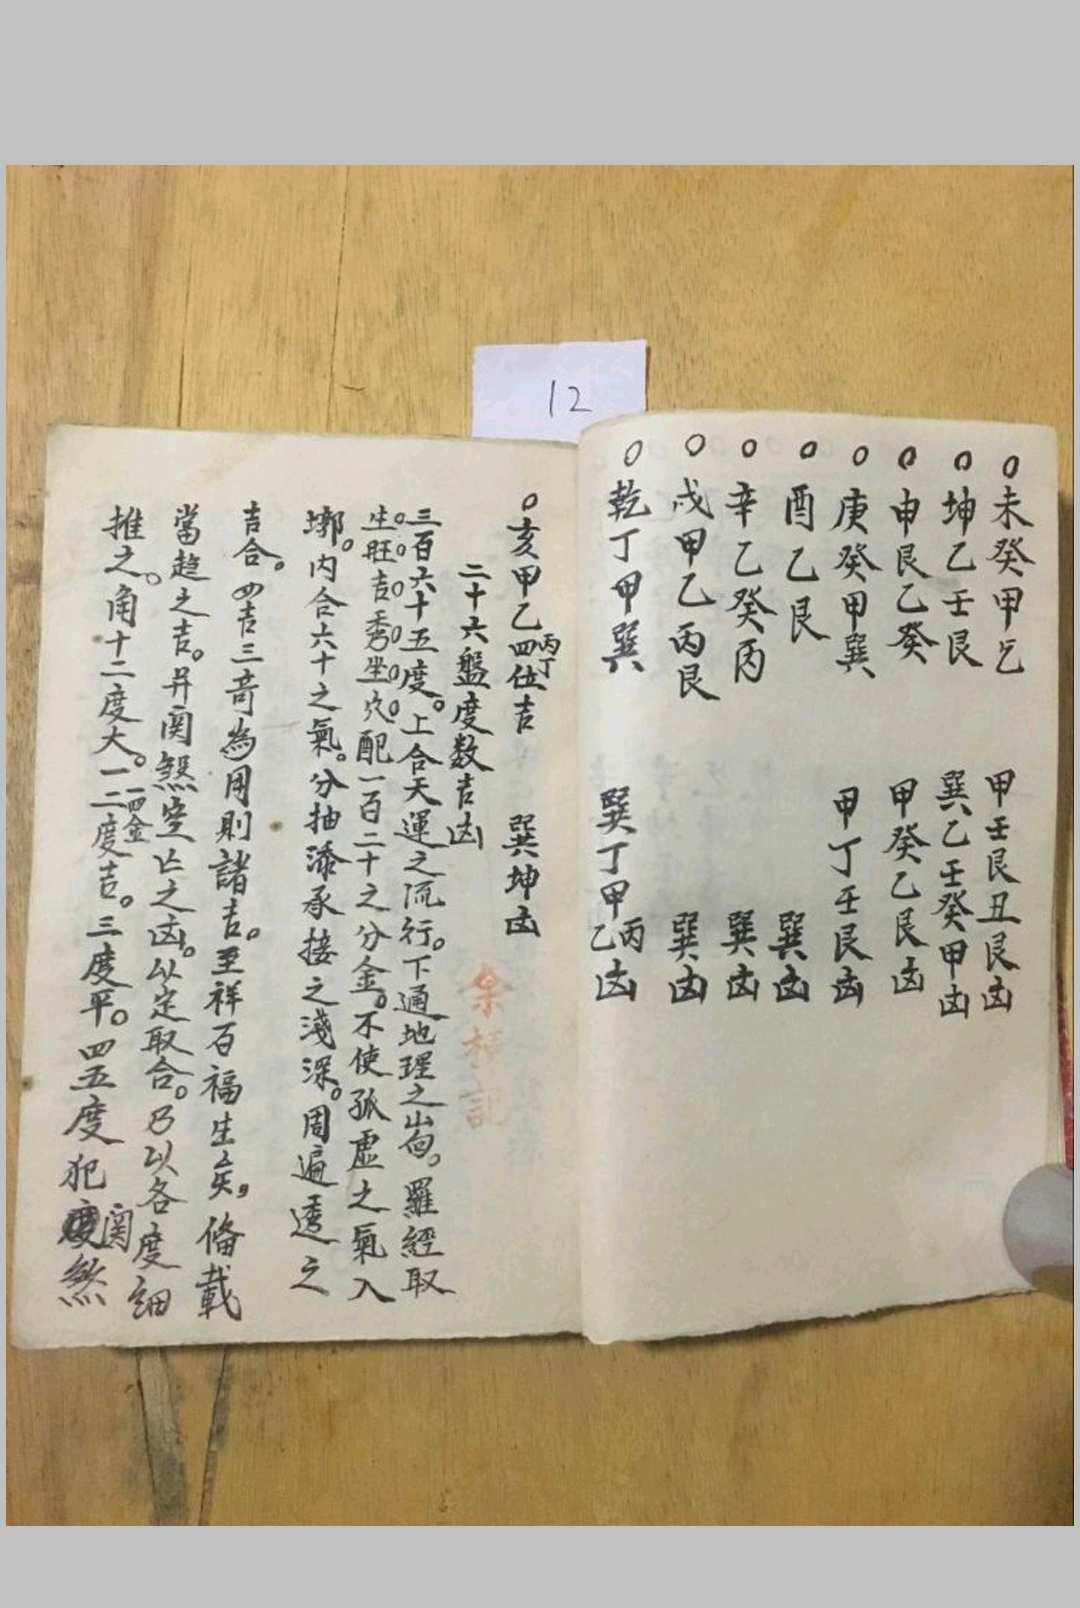 12
○未癸甲乞 甲壬艮丑艮凶
○坤乙壬艮 巽乙壬癸甲凶
○申艮乙癸 甲癸乙艮凶
○庚癸甲巽 甲丁壬艮凶
○酉乙艮 巽凶
○辛乙癸丙 巽凶
○戌甲乙丙艮 巽凶
○乾丁甲巽 巽丁甲乙丙凶
○亥甲乙丙丁四位吉 巽坤凶
二十六盤度数吉凶
三百六十五度。上合天運之流行。下通地理之山向。羅經取
生旺吉秀坐穴配一百二十之分金。不使孤虛之氣入
墎。内合六十之氣。分抽添承接之淺深。周遍透之
吉合。四吉三竒為用則諸吉。至祥百福生矣，俻載
當趋之吉。并関煞空亡之凶。以定取合。乃以各度細
推之。角十二度大。一二度吉。一四金三度平。四五度犯関煞
記